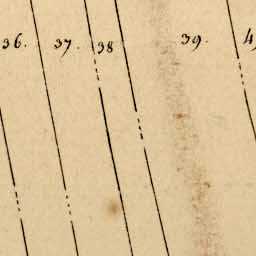 36. 37. 38 39.